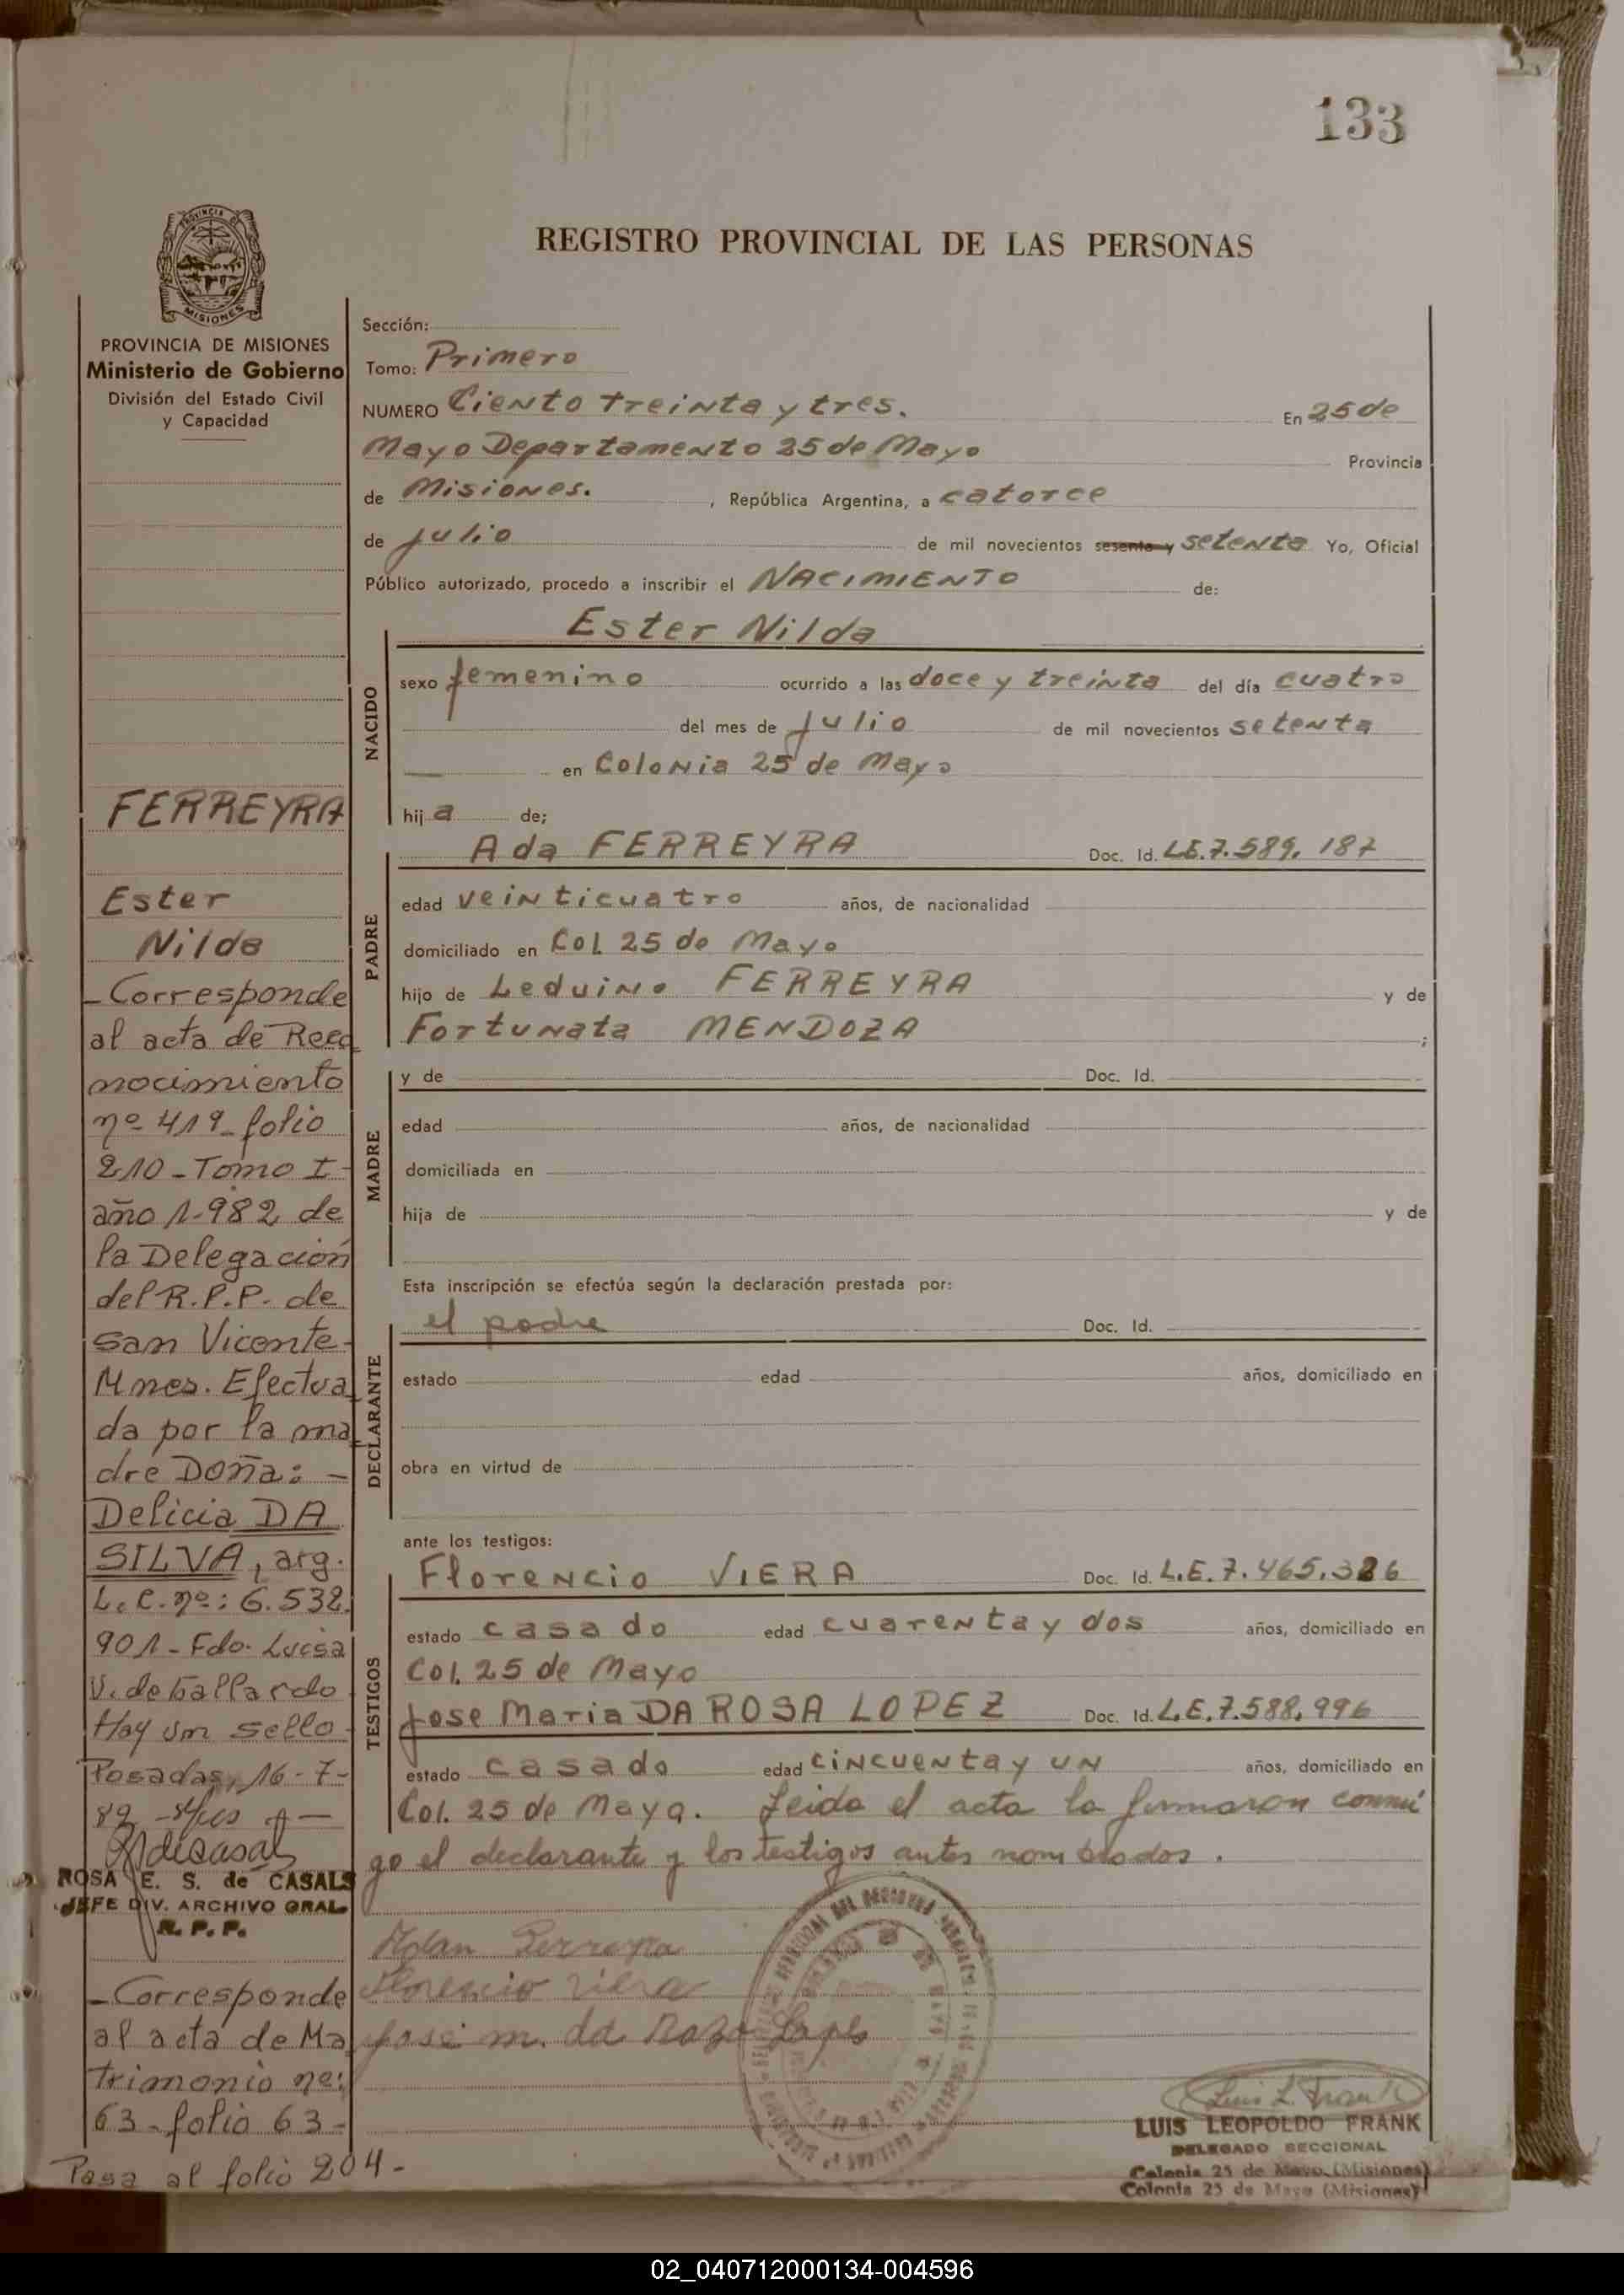 133
PROVINCIA DE
MISIONES
REGISTRO PROVINCIAL DE LAS PERSONAS
PROVINCIA DE MISIONES
Ministerio de Gobierno
División del Estado Civil
y Capacidad
FERREYRA
Ester
Nilda
- Corresponde
al acta de Reco
nocimiento
nº 419 - folio
210 - Tomo I -
año 1.982 de
la Delegación
del R.P.P. de
San Vicente -
Mnes. Efectua
da por la ma
dre Doña: -
Delicia DA
SILVA, arg.
L.C. nº: 6.532.
901 - Fdo. Luisa
V. de Gallardo
Hay un sello
Posadas, 16-7-
82
ROSA E. S. de CASALS
JEFE DIV. ARCHIVO GRAL.
R. P. P.
- Corresponde
al acta de Ma
trimonio nº:
63 - folio 63 -
Pasa al folio 204 -
Sección:
Tomo: Primero
NUMERO Ciento treinta y tres. En 25 de
Mayo Departamento 25 de Mayo Provincia
de Misiones. , República Argentina, a catorce
de julio de mil novecientos sesenta y setenta Yo, Oficial
Público autorizado, procedo a inscribir el NACIMIENTO de:
NACIDO
Ester Nilda
sexo femenino ocurrido a las doce y treinta del día cuatro
del mes de julio de mil novecientos setenta
en Colonia 25 de Mayo
hija de;
PADRE
Ada FERREYRA Doc. Id. L.E.7.589.187
edad veinticuatro años, de nacionalidad
domiciliado en Col. 25 de Mayo
hijo de Leduino FERREYRA y de
Fortunata MENDOZA ;
MADRE
y de Doc. Id.
edad años, de nacionalidad
domiciliada en
hija de y de
Esta inscripción se efectúa según la declaración prestada por:
DECLARANTE
el padre Doc. Id.
estado edad años, domiciliado en
obra en virtud de
ante los testigos:
TESTIGOS
Florencio VIERA Doc. Id. L.E.7.465.326
estado casado edad cuarenta y dos años, domiciliado en
Col. 25 de Mayo
Jose Maria DA ROSA LOPEZ Doc. Id. L.E.7.588.996
estado casado edad cincuenta y un años, domiciliado en
Col. 25 de Mayo. Leida el acta la firmaron conmi
go el declarante y los testigos antes nombrados.
Florencio Viera
José m. da Roza Lopes
LUIS LEOPOLDO FRANK
DELEGADO SECCIONAL
Colonia 25 de Mayo (Misiones)
Colonia 25 de Mayo (Misiones)
02_040712000134-004596